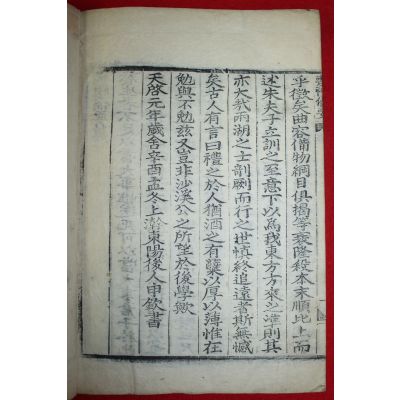 乎徵矣曲容備物綱目俱揭等衰隆殺本末順比上而
述朱夫子立訓之至意下以爲我東方方來之準則其
亦大哉兩湖之士剞劂而行之世慎終追遠者斯無憾
矣古人有言曰禮之於人猶酒之有糵以厚以薄惟在
勉與不勉茲又豈非沙溪公之所望於後學歟
天啓元年歲舍辛酉孟冬上澣東陽後人申欽書